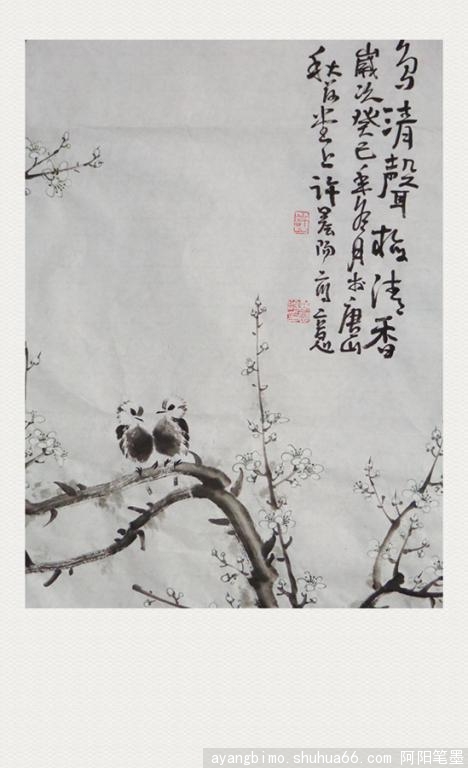 鸟清聲梅清香
歲次癸巳年冬月於唐山
秋谷堂上許晨阳寫意
ayangbimo.shuhua66.com 阿阳笔墨